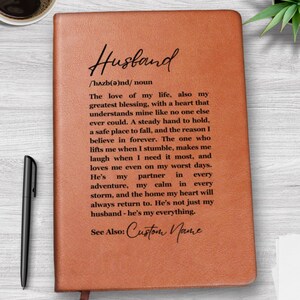 Husband
/hʌzb(ə)nd/ noun
The love of my life, also my
greatest blessing, with a heart that
understands mine like no one else
ever could. A steady hand to hold,
a safe place to fall, and the reason I
believe in forever. The one who
lifts me when I stumble, makes me
laugh when I need it most, and
loves me even on my worst days.
He's my partner in every
adventure, my calm in every
storm, and the home my heart will
always return to. He's not just my
husband - he's my everything.
See Also: Custom Name